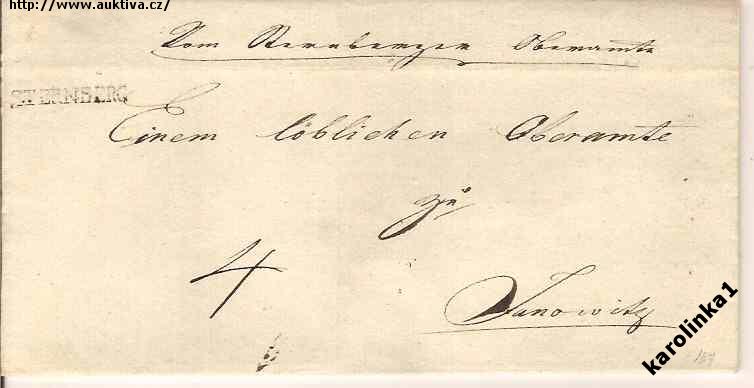 http://www.auktiva.cz/
Vom Sternberger Oberamte
STERNBERG
Einem löblichen Oberamte
zu
Janowitz
4
karolinka1